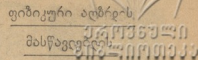 ფიზიკური აღზრდის
მასწავლებლის
ეროვნული
ბიბლიოთეკა